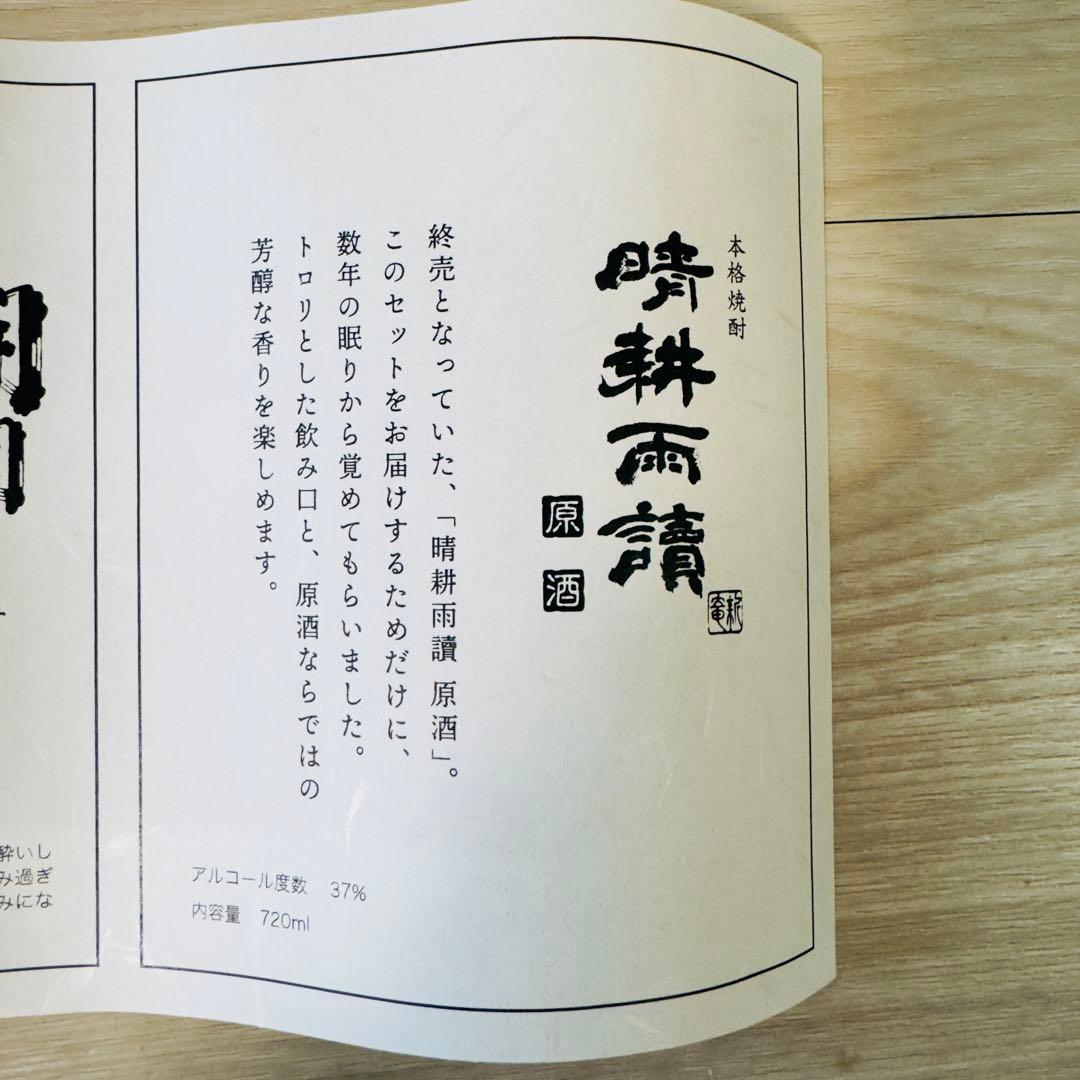 本格焼酎
晴耕雨讀
原酒
終売となっていた、「晴耕雨讀 原酒」。
このセットをお届けするためだけに、
数年の眠りから覚めてもらいました。
トロリとした飲み口と、原酒ならではの
芳醇な香りを楽しめます。
アルコール度数 37%
内容量 720ml
酔いし
み過ぎ
みにな